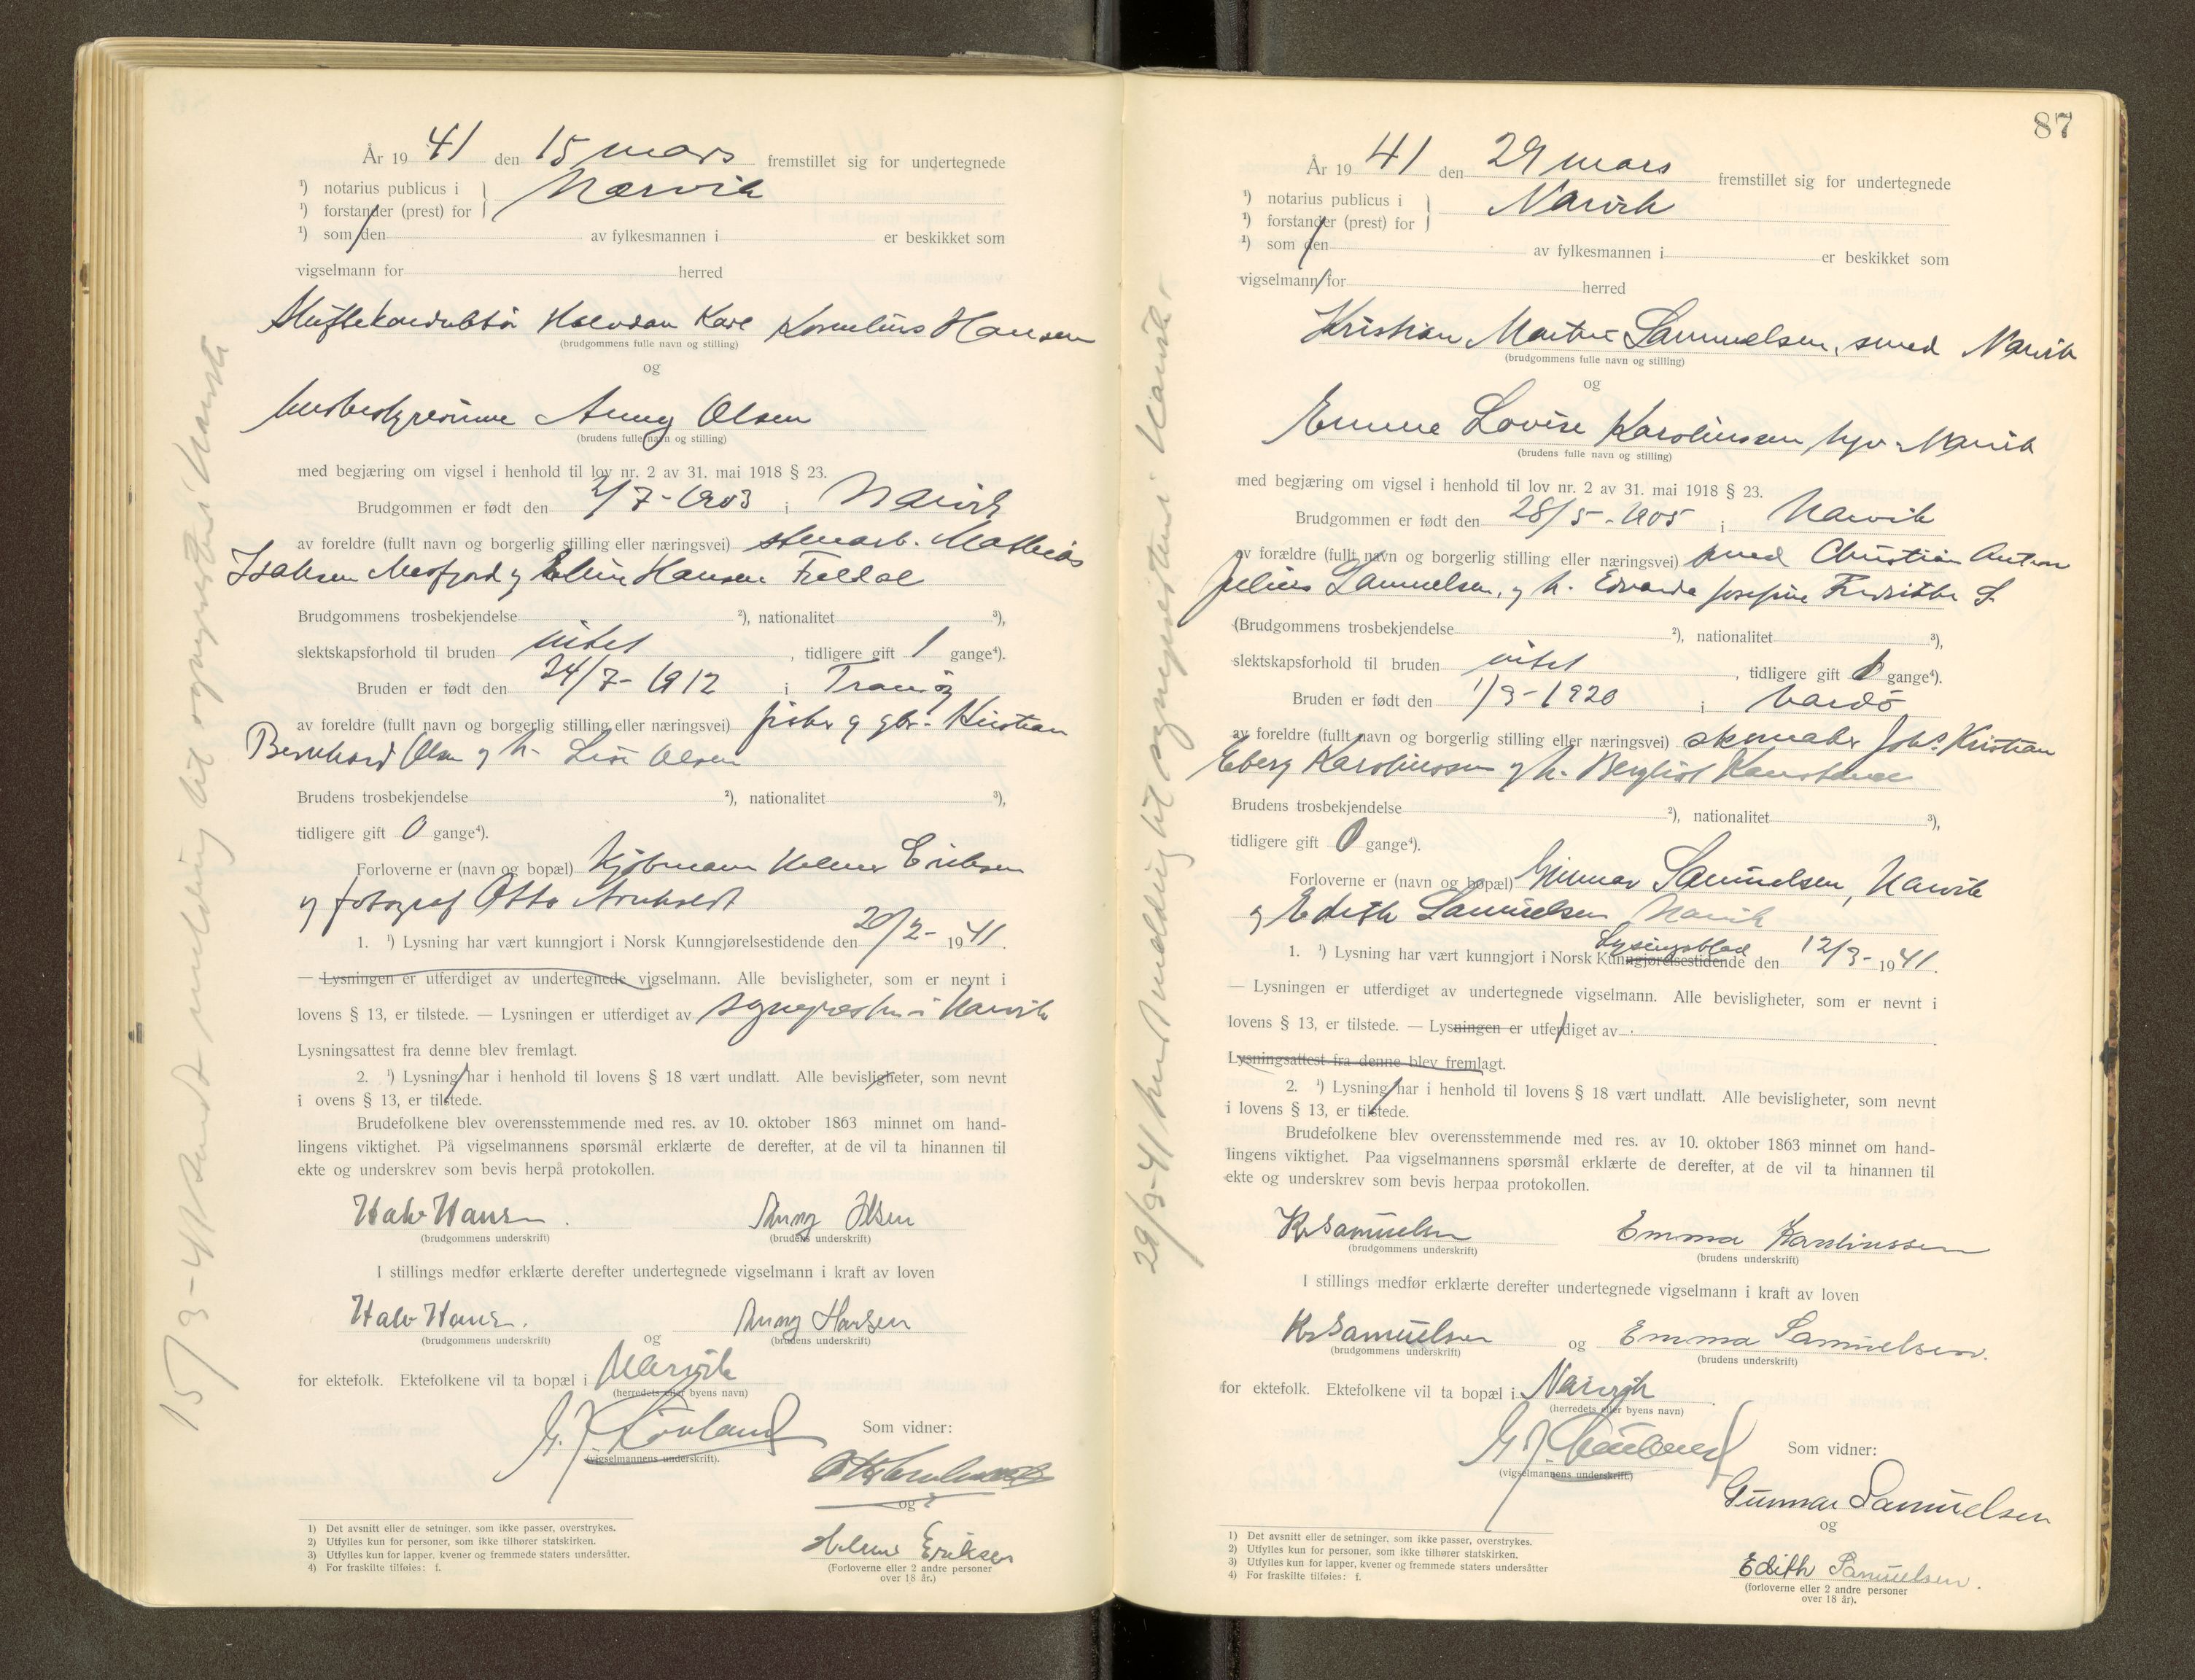 År 19 41 den 15 mars fremstillet sig for undertegnede
¹) notarius publicus i } Narvik
¹) forstander (prest) for
¹) som den av fylkesmannen i er beskikket som
vigselmann for herred
Halvdan Kare Kornelius Hansen
(brudgommens fulle navn og stilling)
og
husbestyrerinne Anny Olsen
(brudens fulle navn og stilling)
med begjæring om vigsel i henhold til lov nr. 2 av 31. mai 1918 § 23.
Brudgommen er født den 2/7-1903 i Narvik
av foreldre (fullt navn og borgerlig stilling eller næringsvei) stenarb. Mathias
Isaksen Mosfjord og Hansen
Brudgommens trosbekjendelse ²), nationalitet ³),
slektskapsforhold til bruden intet, tidligere gift 1 gange⁴).
Bruden er født den 24/7-1912 i Tranøy
av foreldre (fullt navn og borgerlig stilling eller næringsvei) fisker og gbr. Kristian
Bernhard Olsen og h. Olsen
Brudens trosbekjendelse ²), nationalitet ³),
tidligere gift 0 gange⁴).
Forloverne er (navn og bopæl) Kjøbmann Helmer Eriksen
og fotograf Otto
1. ¹) Lysning har vært kunngjort i Norsk Kunngjørelsestidende den 20/2- 1941.
— Lysningen er utferdiget av undertegnede vigselmann. Alle bevisligheter, som er nevnt i
lovens § 13, er tilstede. — Lysningen er utferdiget av sognepresten i Narvik
Lysningsattest fra denne blev fremlagt.
2. ¹) Lysning har i henhold til lovens § 18 vært undlatt. Alle bevisligheter, som nevnt
i ovens § 13, er tilstede.
Brudefolkene blev overensstemmende med res. av 10. oktober 1863 minnet om hand-
lingens viktighet. På vigselmannens spørsmål erklærte de derefter, at de vil ta hinannen til
ekte og underskrev som bevis herpå protokollen.
Halv Hansen. Anny Olsen
(brudgommens underskrift) (brudens underskrift)
I stillings medfør erklærte derefter undertegnede vigselmann i kraft av loven
Halv Hansen. og Anny Hansen
(brudgommens underskrift) (brudens underskrift)
for ektefolk. Ektefolkene vil ta bopæl i Narvik
(herredets eller byens navn)
Som vidner:
(vigselmannens underskrift).
og
Helmer Eriksen
(Forloverne eller 2 andre personer
over 18 år.)
1) Det avsnitt eller de setninger, som ikke passer, overstrykes.
2) Utfylles kun for personer, som ikke tilhører statskirken.
3) Utfylles kun for lapper. kvener og fremmede staters undersåtter.
4) For fraskilte tilføies: f.
15/3-41 sendt melding til sognepresten i Narvik
87
År 19 41 den 29 mars fremstillet sig for undertegnede
¹) notarius publicus i } Narvik
¹) forstander (prest) for
¹) som den av fylkesmannen i er beskikket som
vigselmann for herred
Kristian Martin Samuelsen, smed Narvik
(brudgommens fulle navn og stilling)
og
Emma Lovise Karolinssen, Narvik
(brudens fulle navn og stilling)
med begjæring om vigsel i henhold til lov nr. 2 av 31. mai 1918 § 23.
Brudgommen er født den 28/5-1905 i Narvik
av forældre (fullt navn og borgerlig stilling eller næringsvei) smed Christian Anton
Julius Samuelsen, og h. Edvarda Josefine Fredrikke S.
(Brudgommens trosbekjendelse ²), nationalitet ³),
slektskapsforhold til bruden intet, tidligere gift 0 gange⁴).
Bruden er født den 1/3-1920 i Vardø
av foreldre (fullt navn og borgerlig stilling eller næringsvei) skomaker Johs. Kristian
Eberg Karolinssen og h. Bergliot Konstanse
Brudens trosbekjendelse ²), nationalitet ³),
tidligere gift 0 gange⁴).
Forloverne er (navn og bopæl) Gunnar Samuelsen, Narvik
og Edith Samuelsen Narvik
Lysingsblad
1. ¹) Lysning har vært kunngjort i Norsk Kunngjørelsestidende den 12/3- 1941.
— Lysningen er utferdiget av undertegnede vigselmann. Alle bevisligheter, som er nevnt i
lovens § 13, er tilstede. — Lysningen er utferdiget av
Lysningsattest fra denne blev fremlagt.
2. ¹) Lysning har i henhold til lovens § 18 vært undlatt. Alle bevisligheter, som nevnt
i lovens § 13, er tilstede.
Brudefolkene blev overensstemmende med res. av 10. oktober 1863 minnet om hand-
lingens viktighet. Paa vigselmannens spørsmål erklærte de derefter, at de vil ta hinannen til
ekte og underskrev som bevis herpaa protokollen.
Kr Samuelsen Emma Karolinssen
(brudgommens underskrift) (brudens underskrift)
I stillings medfør erklærte derefter undertegnede vigselmann i kraft av loven
Kr Samuelsen og Emma Samuelsen.
(brudgommens underskrift) (brudens underskrift)
for ektefolk. Ektefolkene vil ta bopæl i Narvik
(herredets eller byens navn)
Som vidner:
(vigselmannens underskrift.)
Gunnar Samuelsen
og
Edith Samuelsen.
(forloverne eller 2 andre personer
over 18 år).
1) Det avsnitt eller de setninger, som ikke passer, overstrykes.
2) Utfylles kun for personer, som ikke tilhører statskirken.
3) Utfylles kun for lapper, kvener og fremmede staters undersåtter
4) For fraskilte tilføies: f.
29/3-41 sendt melding til sognepresten i Narvik